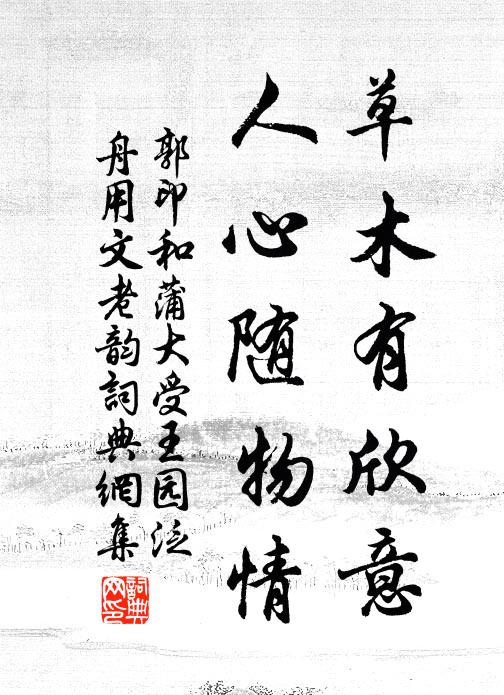 草木有欣意
人心随物情
郭印和蒲大受王园泛
舟用文老韵詞典網集
詞典
网印